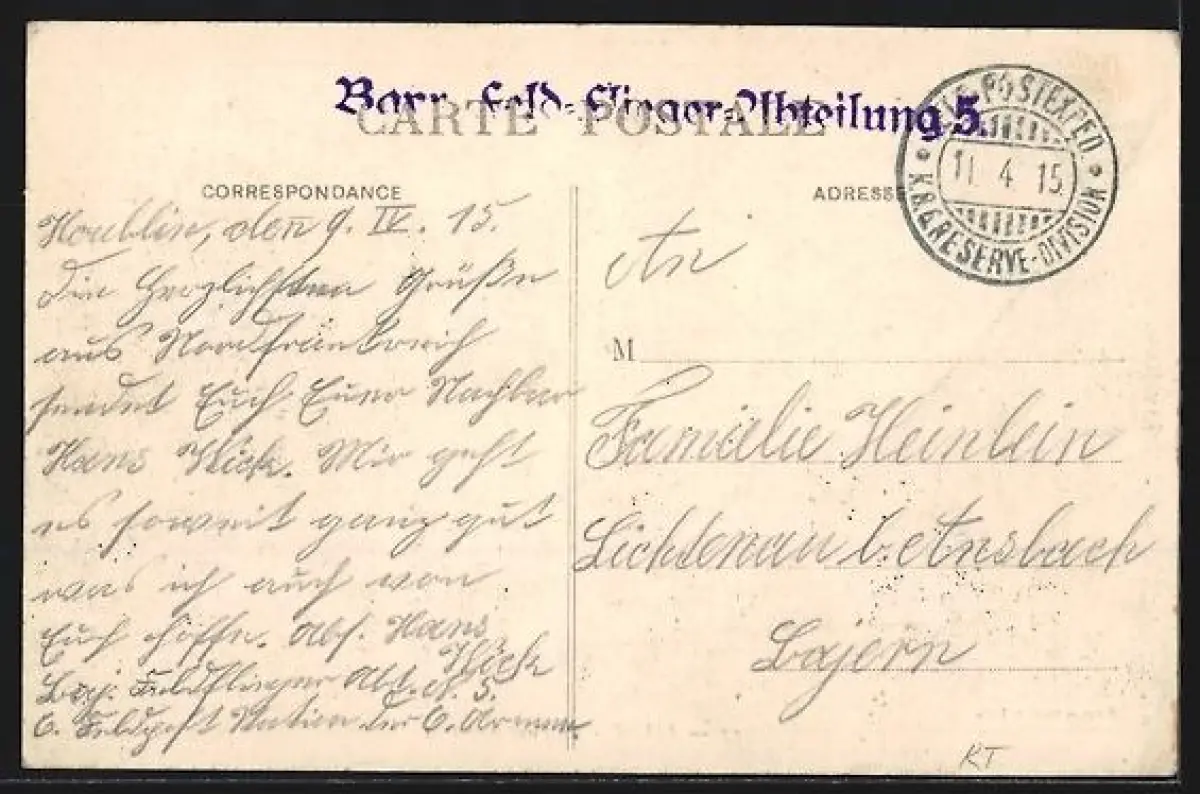 Bayr. Feld-Flieger-Abteilung 5.
CARTE POSTALE
POSTEXPED.
11 4 15
K.B.6.RESERVE-DIVISION
CORRESPONDANCE
ADRESSE
Houblin, den 9. IV. 15.
Die Herzlichsten Grüße
aus Nordfrankreich
sendet Euch Euer Nachbar
Hans. Mir geht
es soweit ganz gut
was ich auch von
Euch hoffe. Abs. Hans
Bay. Feldflieger Abt. N. 5.
6. Feldpost Station der 6. Armee.
An
M
Familie Heinlein
Lichtenau b. Ansbach
Bajern
KT